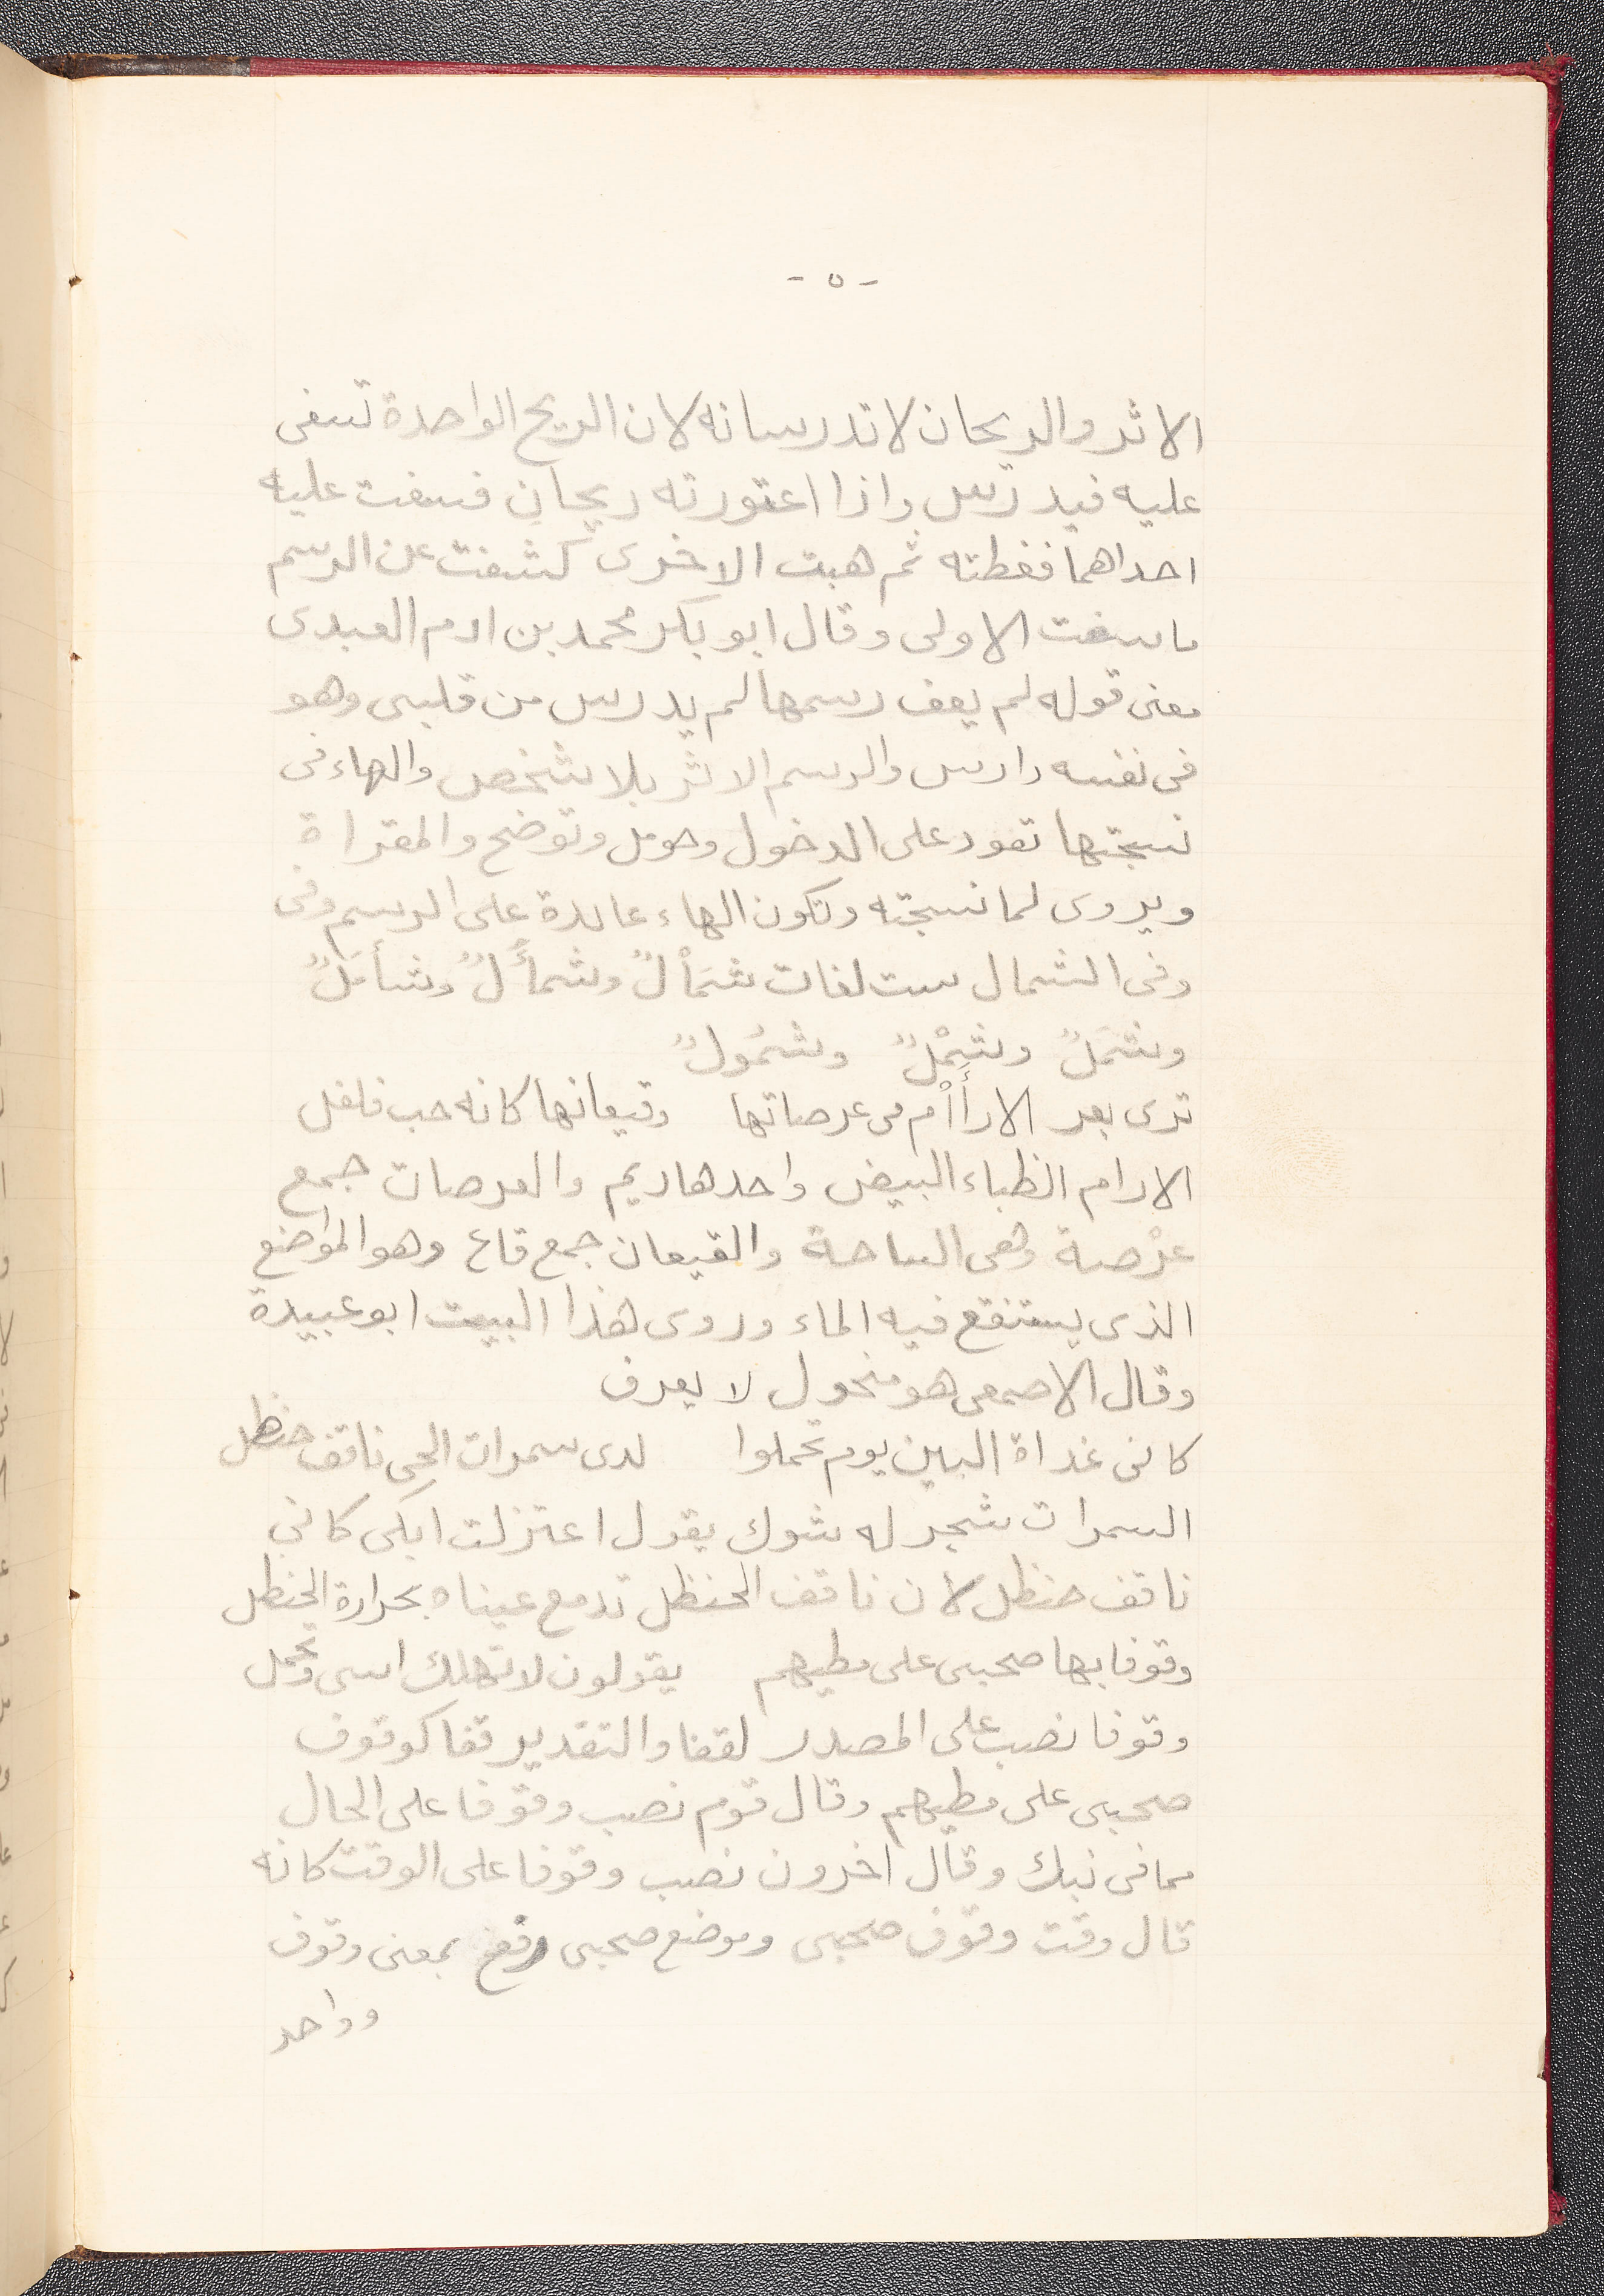 - ٥ -
الاثر والريحان لا تدرسانه لان الريح الواحدة تسفى
عليه فيدرس واذا اعتورته ريحان فسفت عليه
احداهما فغطته ثم هبت الاخرى كشفت عن الرسم
ما سفت الاولى وقال ابو بكر محمد بن ادم العبدى
معنى قوله لم يعف رسمها لم يدرس من قلبى وهو
فى نفسه دارس والرسم الاثر بلا شخص والهاء فى
نسجتها تعود على الدخول وحومل وتوضح والمقراة
ويروى لما نسجته وتكون الهاء عائدة على الرسم وفى
وفى الشمال ست لغات شَمْأَلٌ وشمأَلٌّ وشأمَلٌ
وشَمَلٌ وشَمْلٌ وشَمُولٌ
ترى بعر الارأام فى عرصاتها وقيعانها كانه حب فلفل
الارام الظباء البيض واحدها ريم والعرصات جمع
عرْصة وهى الساحة والقيعان جمع قاع وهو المواضع
الذى يستنقع فيه الماء وروى هذا البيت ابو عبيدة
وقال الاصمعى هو منحول لا يعرف
كانى غداة البين يوم تحملوا لدى سمرات الحى ناقف حنظل
السمرات شجر له شوك يقول اعتزلت ابكى كانى
ناقف حنظل لأن ناقف الحنظل تدمع عيناه بحرارة الحنظل
وقوفا بها صحبى على مطيهم يقولون لا تهلك اسى وتجمل
وقوفا نصب على المصدر لقفا والتقدير قفا كوقوف
صحبى على مطيهم وقال قوم نصب وقوفا على الحال
مما فى نبك وقال اخرون نصب وقوفا على الوقت كانه
قال وقت وقوف صحبى وموضع صحبى رفع بمعنى وقوف
وواحد